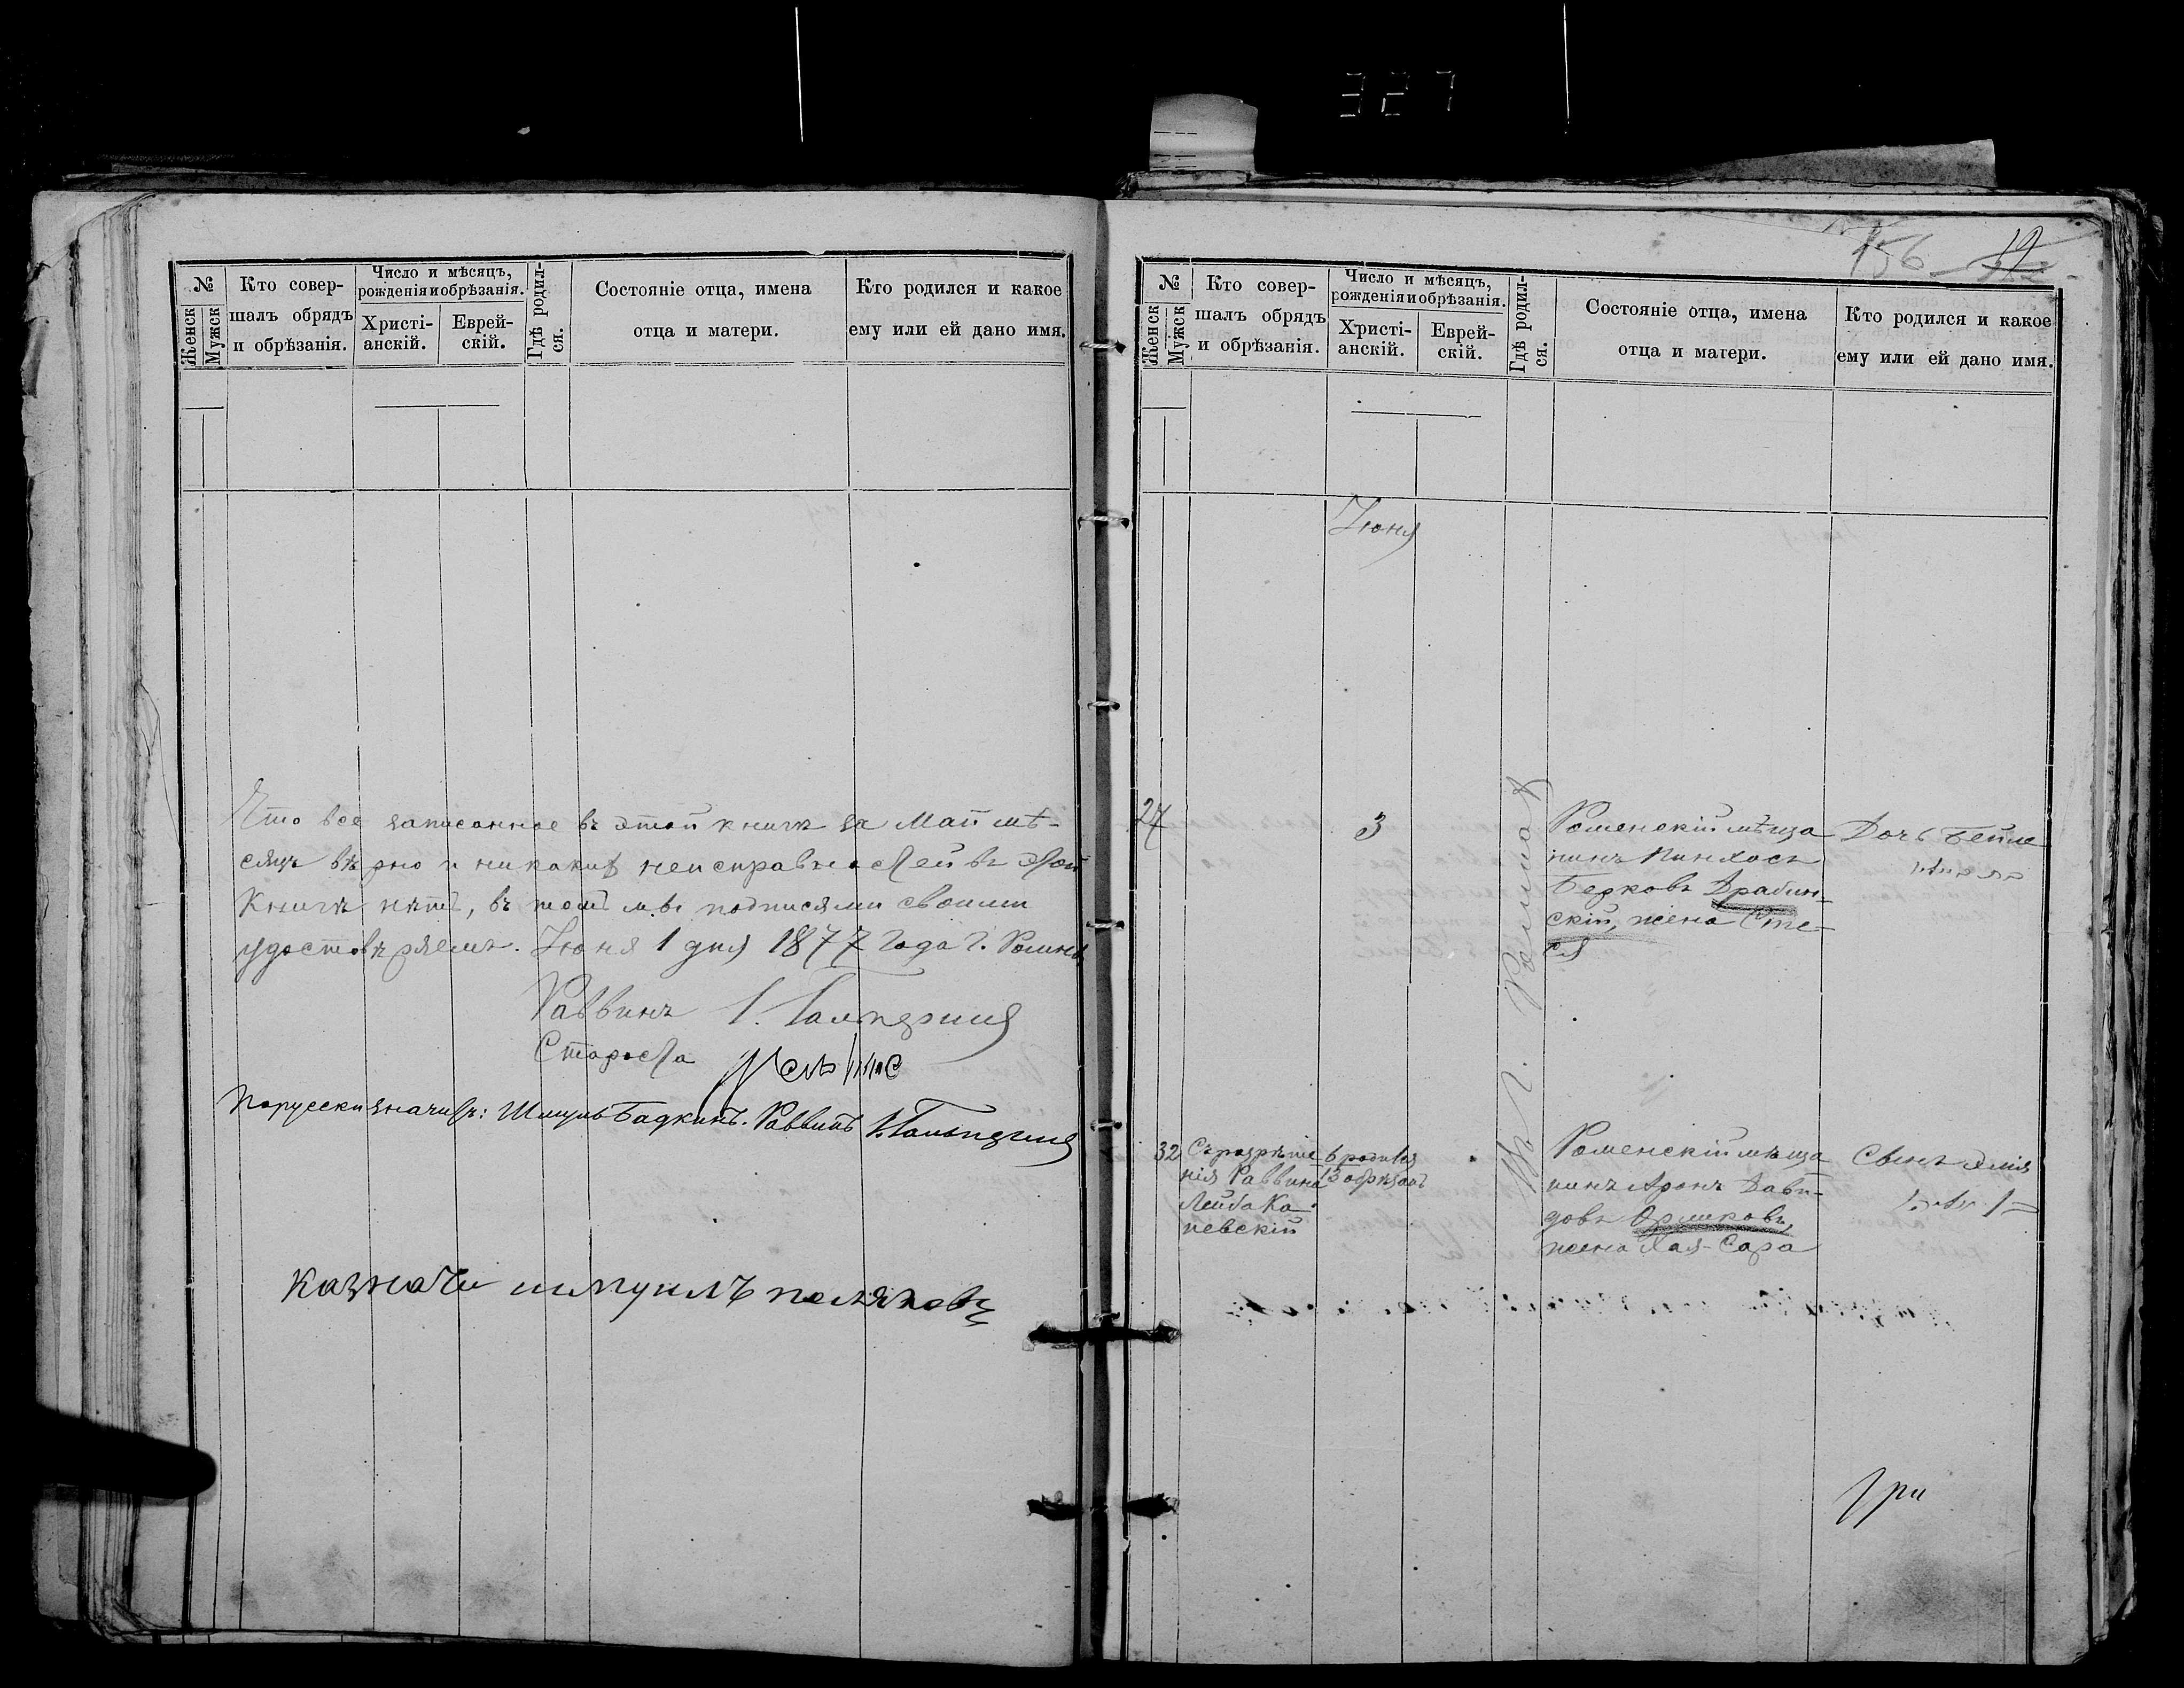 327
№
Женск
Мужск
Кто совер-
шалъ обрядъ
и обрѣзанія.
Число и мѣсяцъ,
рожденія и обрѣзанія.
Христі-
анскій.
Еврей-
скій.
Гдѣ родил-
ся.
Состояніе отца, имена
отца и матери.
Кто родился и какое
ему или ей дано имя.
Что все записанное въ этой книгѣ за Май мѣ-
сяцъ вѣрно и никакихъ неисправностей въ этой
Книгѣ нѣтъ, въ томъ мы подписями своими
удостовѣряемъ. Іюня 1 дня 1877 года г. Ромны
Раввинъ І. Гальперинъ
Староста
По русски значитъ: Шмуль Бадкинъ. Раввинъ І. Гальперинъ
казначи шмуилъ поляковъ
156
№
Женск
Мужск
Кто совер-
шалъ обрядъ
и обрѣзанія.
Число и мѣсяцъ,
рожденія и обрѣзанія.
Христі-
анскій.
Еврей-
скій.
Гдѣ родил-
ся.
Состояніе отца, имена
отца и матери.
Кто родился и какое
ему или ей дано имя.
Іюня
27
3
Въ г. Ромнахъ
Роменскій мѣща
нинъ Пинхосъ
Берковъ Драбин-
скій, жена Сте-
ся
Дочь Бейле
32
Съ разрѣше
нія Раввина
Лейба Ка
невскій
6 родился
13 обрѣзанъ
Роменскій мѣща
нинъ Аронъ Дави-
довъ
жена Хая-Сара
Сынъ